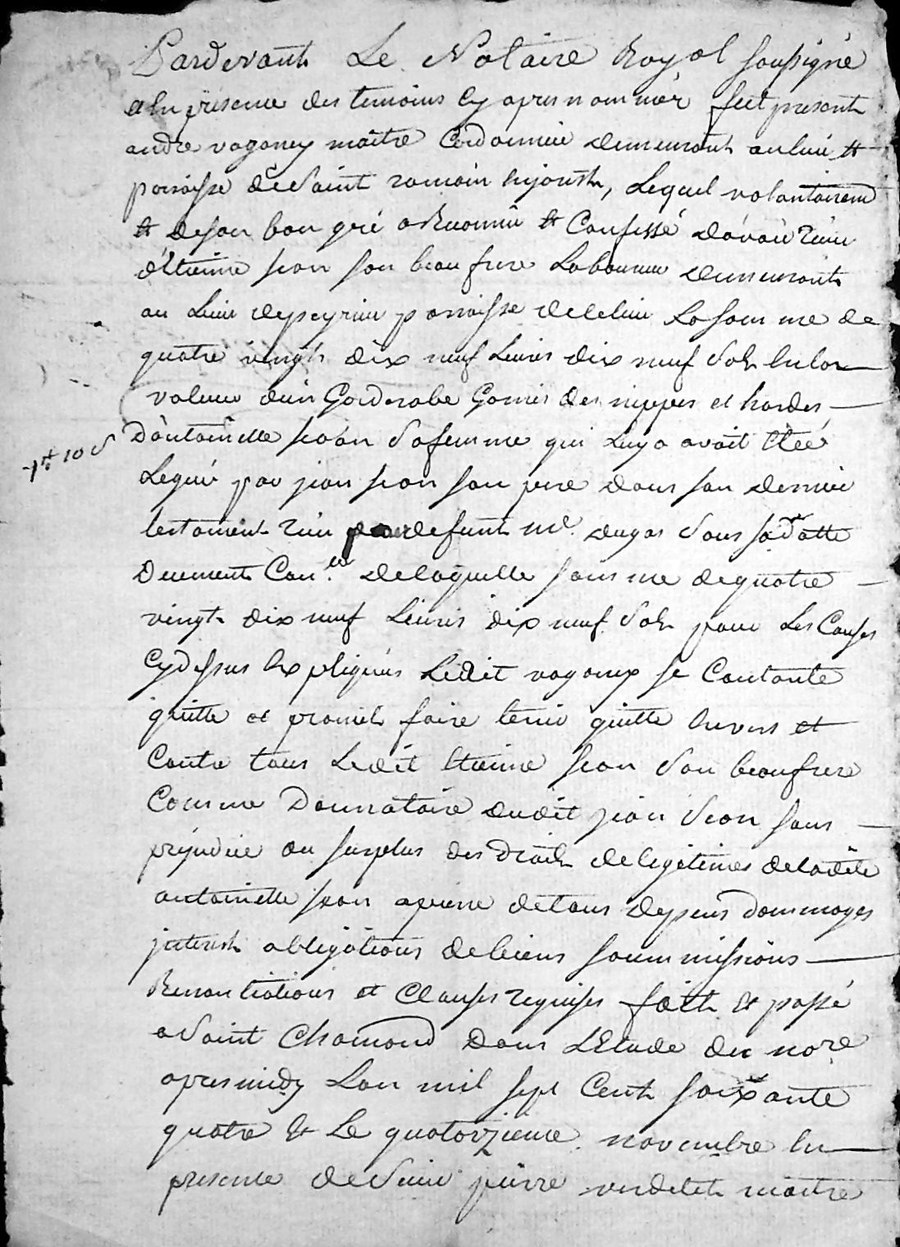 Pardevant Le Notaire Royal soussigné
a la presence des temoins cy apres nommés fut present
andré vaganay maitre Cordonnier demeurant au lieu et
paroisse de saint romain en jarest, Lequel volontairem
et de son bon gré a Reconnû et Confessé d'avoir reçu
d'Etienne jean son beau frere Laboureur demeurant
au Lieu de peyrieu paroisse de La somme de
quatre vingts dix neuf Livres dix neuf sols en la
valeur d'un Garderobe Garnis de nippes et hardes
D'antoinette sa femme qui Luy avoit Eté
Legué par jean son pere dans son dernier
testament reçu par defunt me dugas sous sa datte
Deuement Con.lé de laquelle somme de quatre
vingt dix neuf Livres dix neuf sols pour Les Causes
Cy dessus Expliquées Ledit vaganay se Contante
quitte et promet faire tenir quitte Envers et
Contre tous Ledit Etienne son beaufrere
Comme Donnataire dudit jean sans
prejudice du surplus des Droits de legitimes de ladite
antoinette a peine de tous depens dommages
interest obligations de biens soummissions
Renontiations et Clauses requises fait et passé
a Saint Chamond Dans L'Etude du no.re
apres midy L'an mil sept Cent soixante
quatre et Le quatorzieme novembre En
presence de sieur pierre verdelet maitre